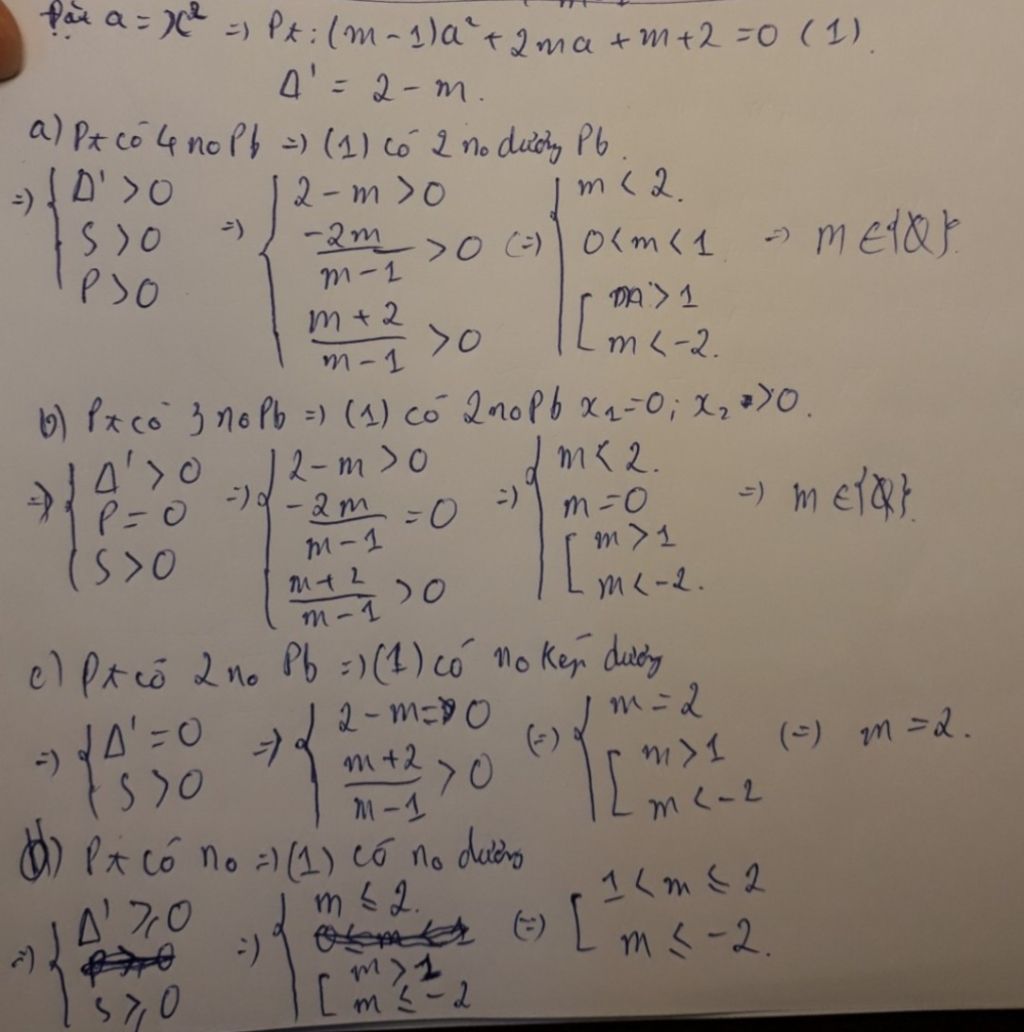 Đặt a = x² => Pt: (m-1)a² + 2ma + m+2 = 0 (1).
Δ' = 2 - m.
a) Pt có 4 no Pb => (1) có 2 no dương Pb.
=> { Δ' > 0 => { 2 - m > 0 <=> { m < 2.
S > 0 -2m/m-1 > 0 0 < m < 1 => m ∈ {Ø}.
P > 0 m+2/m-1 > 0 [ m > 1
m < -2.
b) Pt có 3 no Pb => (1) có 2 no Pb x₁=0; x₂ > 0.
=> { Δ' > 0 => { 2 - m > 0 => { m < 2.
P = 0 -2m/m-1 = 0 m = 0 => m ∈ {Ø}.
S > 0 m+2/m-1 > 0 [ m > 1
m < -2.
c) Pt có 2 no Pb => (1) có no kép dương
=> { Δ' = 0 => { 2 - m = 0 <=> { m = 2 <=> m = 2.
S > 0 m+2/m-1 > 0 [ m > 1
m < -2
d) Pt có no => (1) có no dương
=> { Δ' ≥ 0 => { m ≤ 2. <=> [ 1 < m ≤ 2
P ≥ 0 0 ≤ m < 1 m ≤ -2.
S ≥ 0 [ m > 1
m ≤ -2